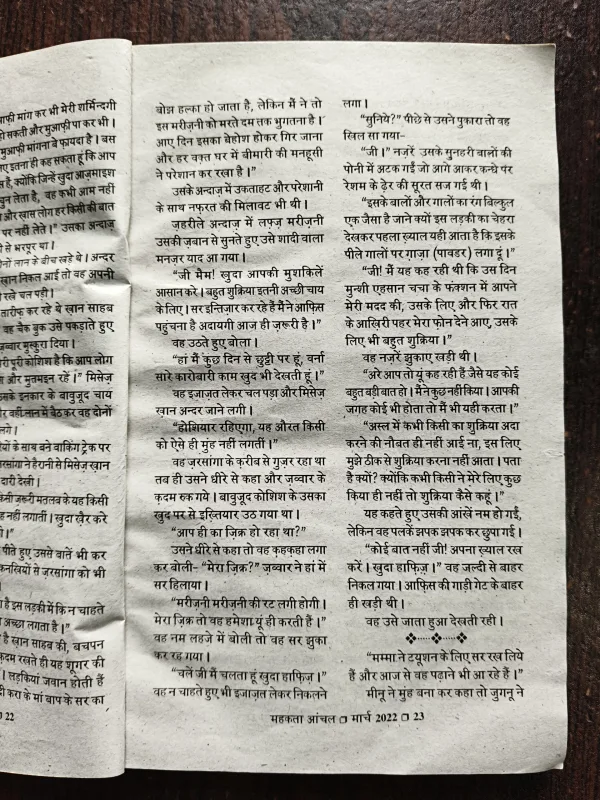 आफ़ी मांग कर भी मेरी शर्मिन्दगी
हो सकती और मुआफ़ी पा कर भी।
मुआफ़ी मांगना बे फ़ायदा है। बस
इतना ही कह सकता हूं कि आप
हैं, क्योंकि जिन्हें खुदा आज़माइश
चुन लेता है, वह कभी आम नहीं
और ख़ास लोग हर किसी की बात
पर नहीं लेते।" उसका अन्दाज़
से भरपूर था।
दोनों लान के बीच खड़े थे। अन्दर
ख़ान निकल आई तो वह अपनी
रखे चल पड़ी।
तारीफ़ कर रहे थे ख़ान साहब
वह चैक बुक उसे पकड़ाते हुए
ज़व्बार मुस्कुरा दिया।
पूरी कोशिश है कि आप लोग
और मुतमइन रहें।" मिसेज़
उसके इनकार के बावुजूद चाय
वहीं लान में बैठ कर वह दोनों
लगे।
के साथ बने वाकिंग ट्रेक पर
ज़रसांगा ने हैरानी से मिसेज़ ख़ान
दारी देखी।
ज़रूरी मतलब के यह किसी
नहीं लगातीं। खुदा ख़ैर करे
पीते हुए उससे बातें भी कर
कनखियों से ज़रसांगा को भी
है इस लड़की में कि न चाहते
अच्छा लगता है।"
है ख़ान साहब की, बचपन
क़दम रखते ही यह शूगर की
। लड़कियां जवान होती हैं
करा के मां बाप के सर का
22
बोझ हल्का हो जाता है, लेकिन मैं ने तो
इस मरीज़नी को मरते दम तक भुगतना है।
आए दिन इसका बेहोश होकर गिर जाना
और हर वक़्त घर में बीमारी की मनहूसी
ने परेशान कर रखा है।"
उसके अन्दाज़ में उकताहट और परेशानी
के साथ नफ़रत की मिलावट भी थी।
ज़हरीले अन्दाज़ में लफ़्ज़ मरीज़नी
उसकी ज़बान से सुनते हुए उसे शादी वाला
मनज़र याद आ गया।
"जी मैम! खुदा आपकी मुशकिलें
आसान करे। बहुत शुक्रिया इतनी अच्छी चाय
के लिए। सर इन्तिज़ार कर रहे हैं मैं ने आफ़िस
पहुंचना है अदायगी आज ही ज़रूरी है।"
वह उठते हुए बोला।
"हां मैं कुछ दिन से छुट्टी पर हूं, वर्ना
सारे कारोबारी काम खुद भी देखती हूं।"
वह इजाज़त लेकर चल पड़ा और मिसेज़
ख़ान अन्दर जाने लगी।
"होशियार रहिएगा, यह औरत किसी
को ऐसे ही मुंह नहीं लगतीं।"
वह ज़रसांगा के क़रीब से गुज़र रहा था
तब ही उसने धीरे से कहा और ज़व्बार के
क़दम रुक गये। बावुजूद कोशिश के उसका
खुद पर से इख़्तियार उठ गया था।
"आप ही का ज़िक्र हो रहा था?"
उसने धीरे से कहा तो वह क़हक़हा लगा
कर बोली- "मेरा ज़िक्र?" ज़व्बार ने हां में
सर हिलाया।
"मरीज़नी मरीज़नी की रट लगी होगी।
मेरा ज़िक्र हो तो वह हमेशा यूं ही करती हैं।"
वह नम लहजे में बोली तो वह सर झुका
कर रह गया।
"चलें जी मैं चलता हूं खुदा हाफ़िज़।"
वह न चाहते हुए भी इजाज़त लेकर निकलने
लगा।
"सुनिये?" पीछे से उसने पुकारा तो वह
खिल सा गया-
"जी।" नज़रें उसके सुनहरी बालों की
पोनी में अटक गईं जो आगे आकर कन्धे पर
रेशम के ढेर की सूरत सज गई थी।
"इसके बालों और गालों का रंग बिल्कुल
एक जैसा है जाने क्यों इस लड़की का चेहरा
देखकर पहला ख़्याल यही आता है कि इसके
पीले गालों पर ग़ाज़ा (पावडर) लगा दूं।"
"जी! मैं यह कह रही थी कि उस दिन
मुन्शी एहसान चचा के फंक्शन में आपने
मेरी मदद की, उसके लिए और फिर रात
के आख़िरी पहर मेरा फ़ोन देने आए, उसके
लिए भी बहुत शुक्रिया।"
वह नज़रें झुकाए खड़ी थी।
"अरे आप तो यूं कह रही हैं जैसे यह कोई
बहुत बड़ी बात हो। मैंने कुछ नहीं किया। आपकी
जगह कोई भी होता तो मैं भी यही करता।"
"अस्ल में कभी किसी का शुक्रिया अदा
करने की नौबत ही नहीं आई ना, इस लिए
मुझे ठीक से शुक्रिया करना नहीं आता। पता
है क्यों? क्योंकि कभी किसी ने मेरे लिए कुछ
किया ही नहीं तो शुक्रिया कैसे कहूं।"
यह कहते हुए उसकी आंखें नम हो गईं,
लेकिन वह पलकें झपक झपक कर छुपा गई।
"कोई बात नहीं जी! अपना ख़्याल रख
करें। खुदा हाफ़िज़।" वह जल्दी से बाहर
निकल गया। आफ़िस की गाड़ी गेट के बाहर
ही खड़ी थी।
वह उसे जाता हुआ देखती रही।
"मम्मा ने ट्यूशन के लिए सर रख लिये
हैं और आज से वह पढ़ाने भी आ रहे हैं।"
मीनू ने मुंह बना कर कहा तो जुगनू ने
महकता आंचल □ मार्च 2022 □ 23